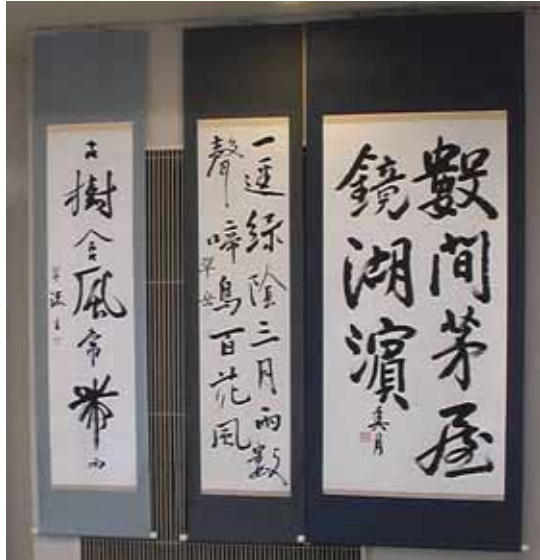 數間茅屋
鏡湖濱
一逕綠陰三月雨數
聲啼鳥百花風
古樹含風常帶雨